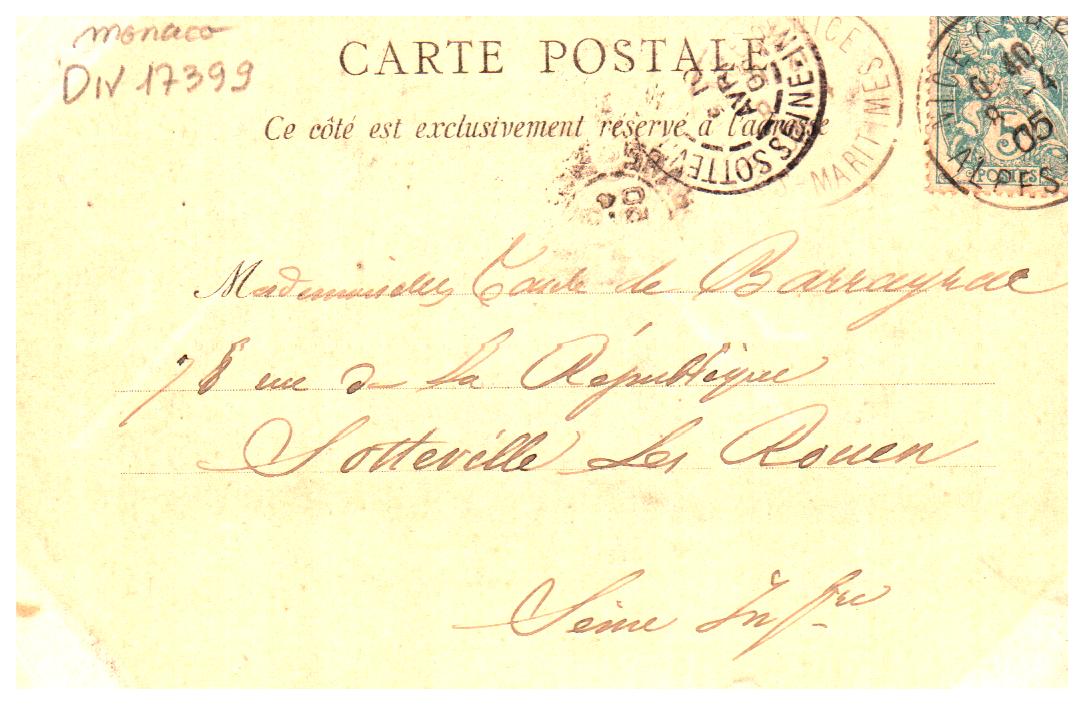 monaco
DIV 17399
CARTE POSTALE
Ce côté est exclusivement réservé à l'adresse
NICE
MARITIMES
SOTTEV SEINE-IN
AVRIL
ALPES
05
5
POSTES
Mademoiselles de Barrayrac
78 rue de la République
Sotteville les Rouen
Seine Infre